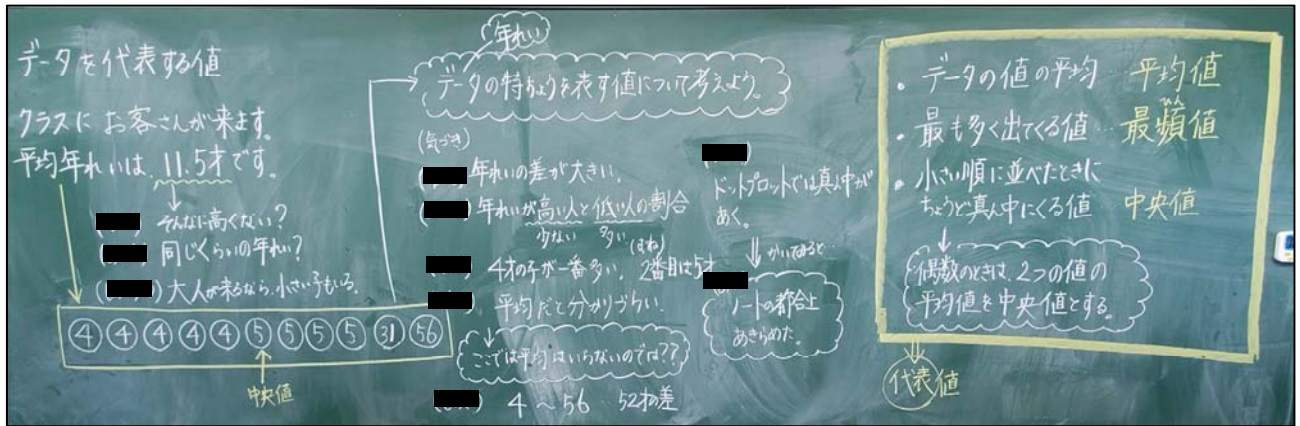 データを代表する値
クラスに お客さんが来ます。
平均年れいは、11.5才です。
そんなに高くない？
同じくらいの年れい？
) 大人が来るなら、小さい子もいる。
4 4 4 4 4 5 5 5 5 31 56
中央値
年れい
データの特ちょうを表す値について考えよう。
(気づき)
( ) 年れいの差が大きい。
( ) 年れいが高い人と低い人の割合
少ない 多い (はね)
4才の子が一番多い。2番目は5才
) 平均だと分かりづらい。
ここでは平均はいらないのでは??
) 4〜56…52才の差
ドットプロットでは真ん中が
あく。
かいてみると…
ノートの都合上
あきらめた。
・データの値の平均 平均値
・最も多く出てくる値… 最頻値
ひん
・小さい順に並べたときに
ちょうど真ん中にくる値 中央値
偶数のときは、2つの値の
平均値を中央値とする。
代表値